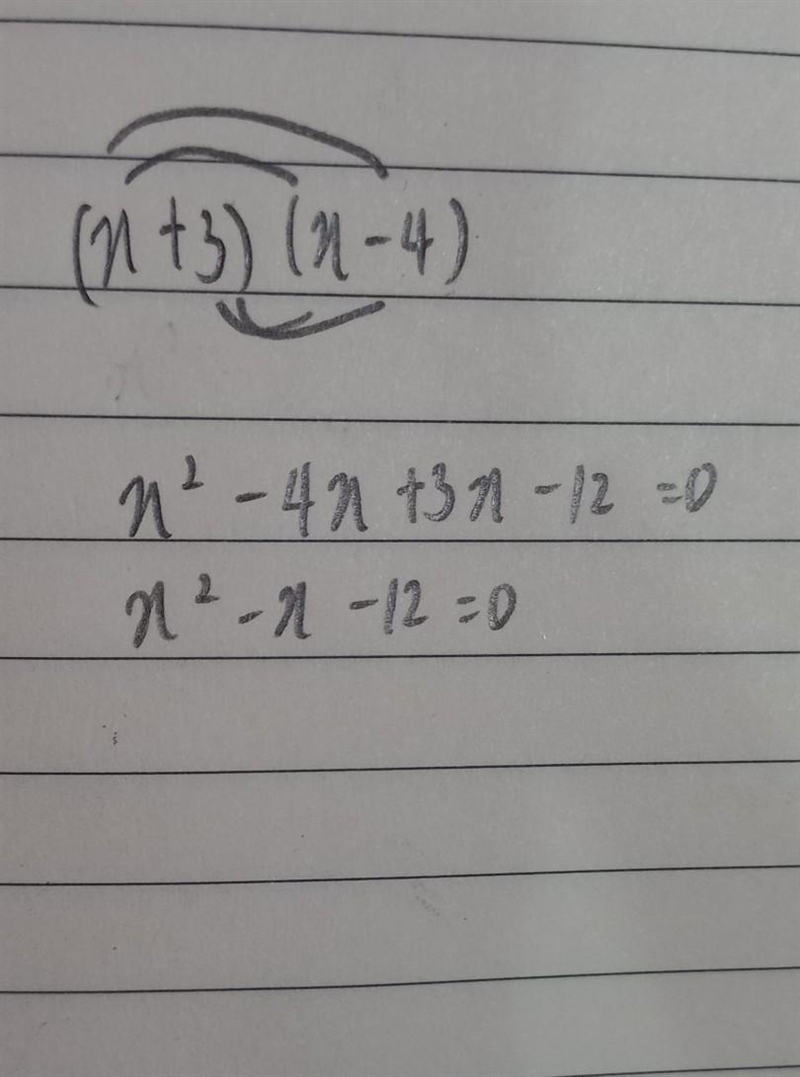 (x+3)(x-4)
x² -4x +3x -12 =0
x² -x -12 =0